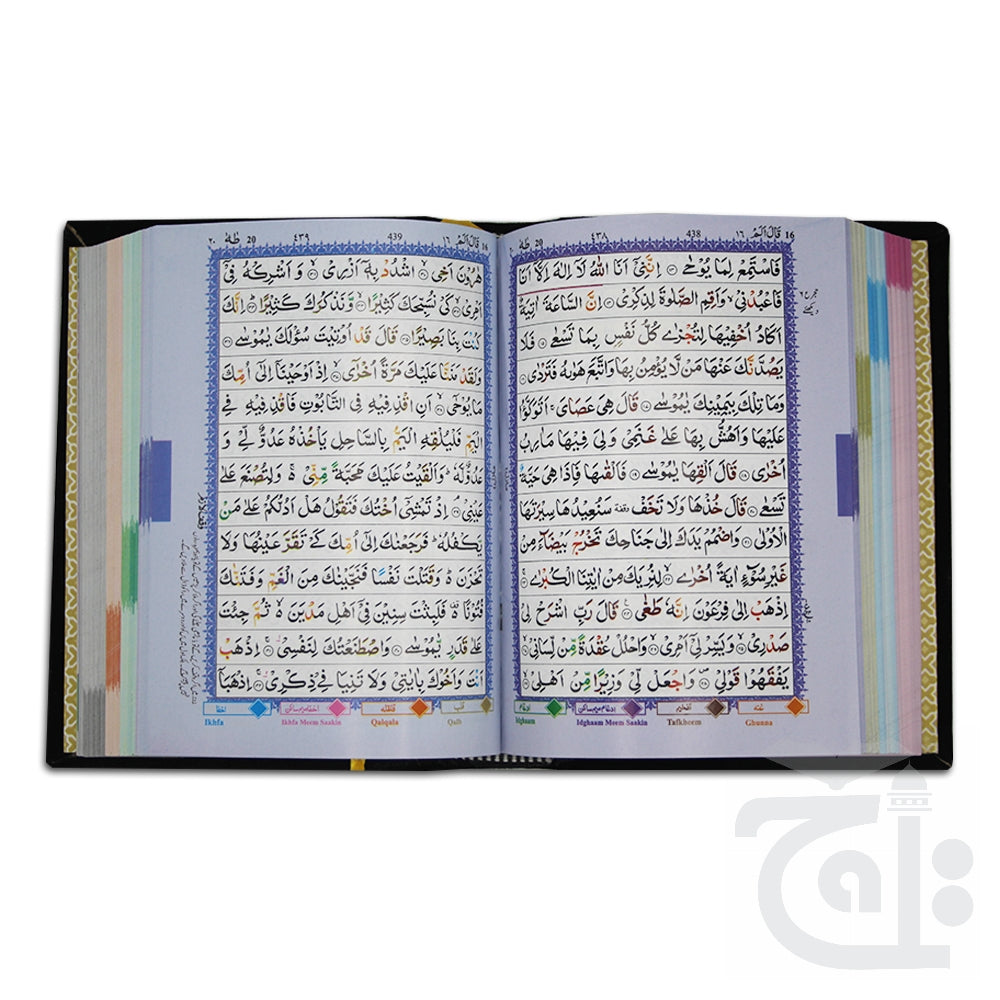 16 قَالَ اَلَمْ ١٦ 438 ٤٣٨ طٰهٰ 20 ٢٠
فَاسْتَمِعْ لِمَا يُوْحٰى ۝ اِنَّنِيْۤ اَنَا اللّٰهُ لَاۤ اِلٰهَ اِلَّاۤ اَنَا
فَاعْبُدْنِيْ ۙ وَاَقِمِ الصَّلٰوةَ لِذِكْرِيْ ۝ اِنَّ السَّاعَةَ اٰتِيَةٌ
اَكَادُ اُخْفِيْهَا لِتُجْزٰى كُلُّ نَفْسٍۭ بِمَا تَسْعٰى ۝ فَلَا
يَصُدَّنَّكَ عَنْهَا مَنْ لَّا يُؤْمِنُ بِهَا وَاتَّبَعَ هَوٰىهُ فَتَرْدٰى ۝
وَمَا تِلْكَ بِيَمِيْنِكَ يٰمُوْسٰى ۝ قَالَ هِيَ عَصَايَ ۚ اَتَوَكَّؤُا
عَلَيْهَا وَاَهُشُّ بِهَا عَلٰى غَنَمِيْ وَلِيَ فِيْهَا مَاٰرِبُ
اُخْرٰى ۝ قَالَ اَلْقِهَا يٰمُوْسٰى ۝ فَاَلْقٰىهَا فَاِذَا هِيَ حَيَّةٌ
تَسْعٰى ۝ قَالَ خُذْهَا وَلَا تَخَفْ وقفة سَنُعِيْدُهَا سِيْرَتَهَا
الْاُوْلٰى ۝ وَاضْمُمْ يَدَكَ اِلٰى جَنَاحِكَ تَخْرُجْ بَيْضَآءَ مِنْ
غَيْرِ سُوْٓءٍ اٰيَةً اُخْرٰى ۝ لِنُرِيَكَ مِنْ اٰيٰتِنَا الْكُبْرٰى ۝
اِذْهَبْ اِلٰى فِرْعَوْنَ اِنَّهٗ طَغٰى ۝ قَالَ رَبِّ اشْرَحْ لِيْ
صَدْرِيْ ۝ وَيَسِّرْ لِيْۤ اَمْرِيْ ۝ وَاحْلُلْ عُقْدَةً مِّنْ لِّسَانِيْ ۝
يَفْقَهُوْا قَوْلِيْ ۝ وَاجْعَلْ لِّيْ وَزِيْرًا مِّنْ اَهْلِيْ ۝
غنّه ادغام
Ghunna Tafkheem Idghaam Meem Saakin Idghaam
16 قَالَ اَلَمْ ١٦ 439 ٤٣٩ طٰهٰ 20 ٢٠
هٰرُوْنَ اَخِي ۝ اشْدُدْ بِهٖۤ اَزْرِيْ ۝ وَاَشْرِكْهُ فِيْۤ
اَمْرِيْ ۝ كَيْ نُسَبِّحَكَ كَثِيْرًا ۝ وَّنَذْكُرَكَ كَثِيْرًا ۝ اِنَّكَ
كُنْتَ بِنَا بَصِيْرًا ۝ قَالَ قَدْ اُوْتِيْتَ سُؤْلَكَ يٰمُوْسٰى ۝
وَلَقَدْ مَنَنَّا عَلَيْكَ مَرَّةً اُخْرٰٓى ۝ اِذْ اَوْحَيْنَاۤ اِلٰۤى اُمِّكَ
مَا يُوْحٰۤى ۝ اَنِ اقْذِفِيْهِ فِي التَّابُوْتِ فَاقْذِفِيْهِ فِي
الْيَمِّ فَلْيُلْقِهِ الْيَمُّ بِالسَّاحِلِ يَاْخُذْهُ عَدُوٌّ لِّيْ وَ
عَدُوٌّ لَّهٗ ؕ وَاَلْقَيْتُ عَلَيْكَ مَحَبَّةً مِّنِّيْ ۚ وَلِتُصْنَعَ عَلٰى
عَيْنِيْ ۝ اِذْ تَمْشِيْۤ اُخْتُكَ فَتَقُوْلُ هَلْ اَدُلُّكُمْ عَلٰى مَنْ
يَّكْفُلُهٗ ؕ فَرَجَعْنٰكَ اِلٰۤى اُمِّكَ كَيْ تَقَرَّ عَيْنُهَا وَلَا
تَحْزَنَ ؕ وَقَتَلْتَ نَفْسًا فَنَجَّيْنٰكَ مِنَ الْغَمِّ وَفَتَنّٰكَ
فُتُوْنًا ۫ فَلَبِثْتَ سِنِيْنَ فِيْۤ اَهْلِ مَدْيَنَ ۙ ثُمَّ جِئْتَ
عَلٰى قَدَرٍ يّٰمُوْسٰى ۝ وَاصْطَنَعْتُكَ لِنَفْسِيْ ۝ اِذْهَبْ
اَنْتَ وَاَخُوْكَ بِاٰيٰتِيْ وَلَا تَنِيَا فِيْ ذِكْرِيْ ۝ اِذْهَبَاۤ
قلقله قلب
Qalqala Qalb Ikhfa Meem Saakin Ikhfa
تاج